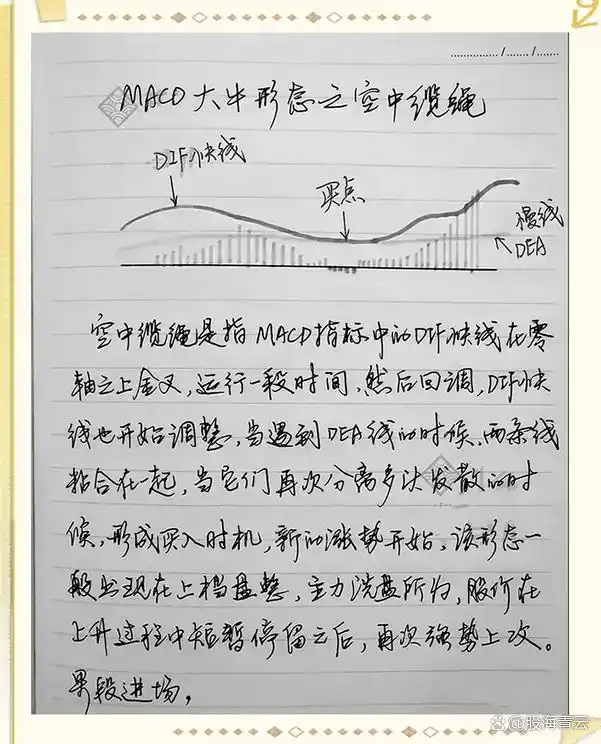 ....../....../......
MACD大牛形态之空中缆绳
DIF快线
买点
慢线
DEA
空中缆绳是指MACD指标中的DIF快线在零
轴之上金叉，运行一段时间，然后回调，DIF快
线也开始调整，当遇到DEA线的时候，两条线
粘合在一起，当它们再次分离多头发散的时
候，形成买入时机，新的涨势开始，该形态一
般出现在上档盘整，主力洗盘所为，股价在
上升过程中短暂停留之后，再次强势上攻。
果段进场，
@股海青云